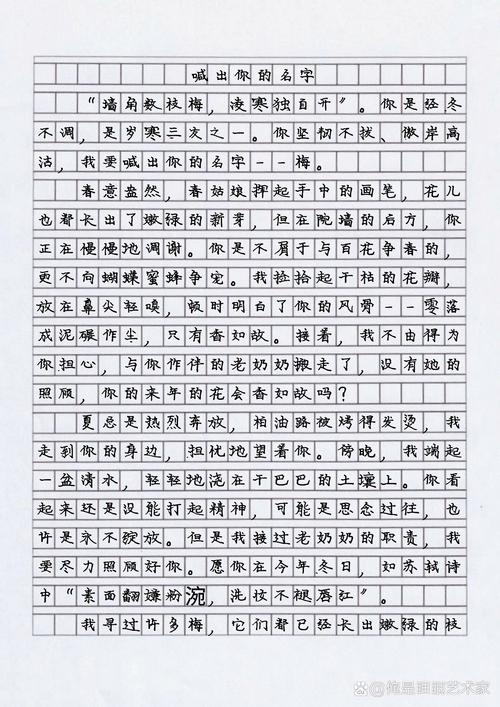 喊出你的名字
“墙角数枝梅，凌寒独自开”。你是经冬
不凋，是岁寒三友之一。你坚韧不拔、傲岸高
洁，我要喊出你的名字--梅。
春意盎然，春姑娘挥起手中的画笔，花儿
也都长出了嫩绿的新芽，但在院墙的后方，你
正在慢慢地凋谢。你是不屑于与百花争春的，
更不向蝴蝶蜜蜂争宠。我捡拾起干枯的花瓣，
放在鼻尖轻嗅，顿时明白了你的风骨--零落
成泥碾作尘，只有香如故。接着，我不由得为
你担心，与你作伴的老奶奶搬走了，没有她的
照顾，你的来年的花会香如故吗？
夏总是热烈奔放，柏油路被烤得发烫，我
走到你的身边，担忧地望着你。傍晚，我端起
一盆清水，轻轻地浇在干巴巴的土壤上。你看
起来还是没能打起精神，可能是思念过往，也
许是永不绽放。但是我接过老奶奶的职责，我
要尽力照顾好你。愿你在今年冬日，如苏轼诗
中“素面翻嫌粉涴，洗妆不褪唇红”。
我寻过许多梅，它们都已经长出嫩绿的枝
@俺是画脑艺术家